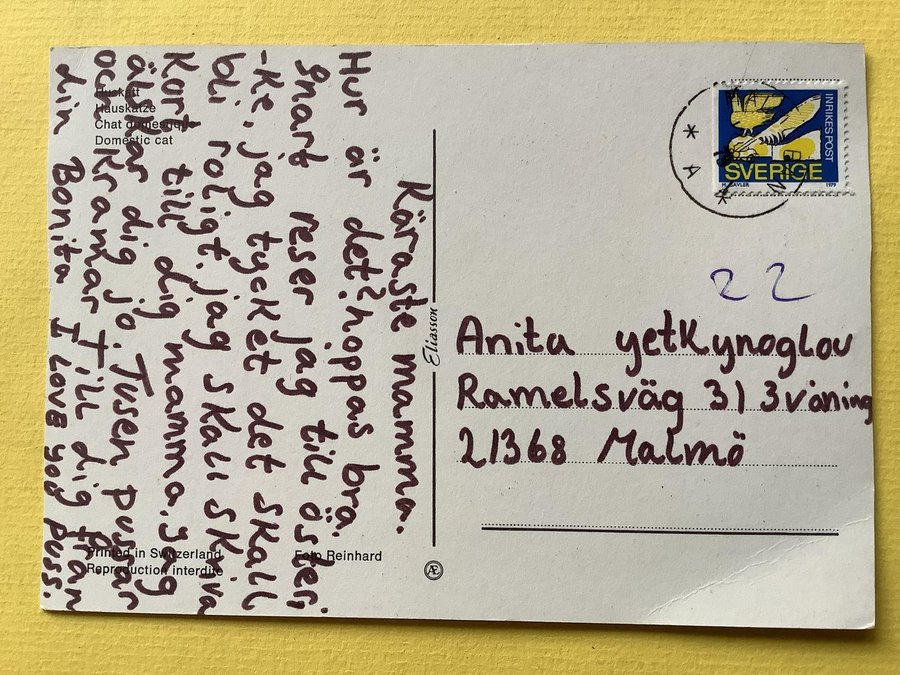 Huskatt
Hauskatze
Chat domestique
Domestic cat
Käraste mamma.
Hur är det? hoppas bra.
Snart reser jag till öster,
-ke, jag tycket det skall
bli roligt. jag skall skriva
Kort till dig mamma. jag
älskar dig jo. Tusen pussar
och Kramar Till dig från
din Bonita I Love you puss.
Printed in Switzerland
Reproduction interdite
Foto Reinhard
Eliasson
Æ
INRIKES POST
SVERIGE
1979
A
22
Anita yetkynoglou
Ramelsväg 31 3 våning
21368 Malmö